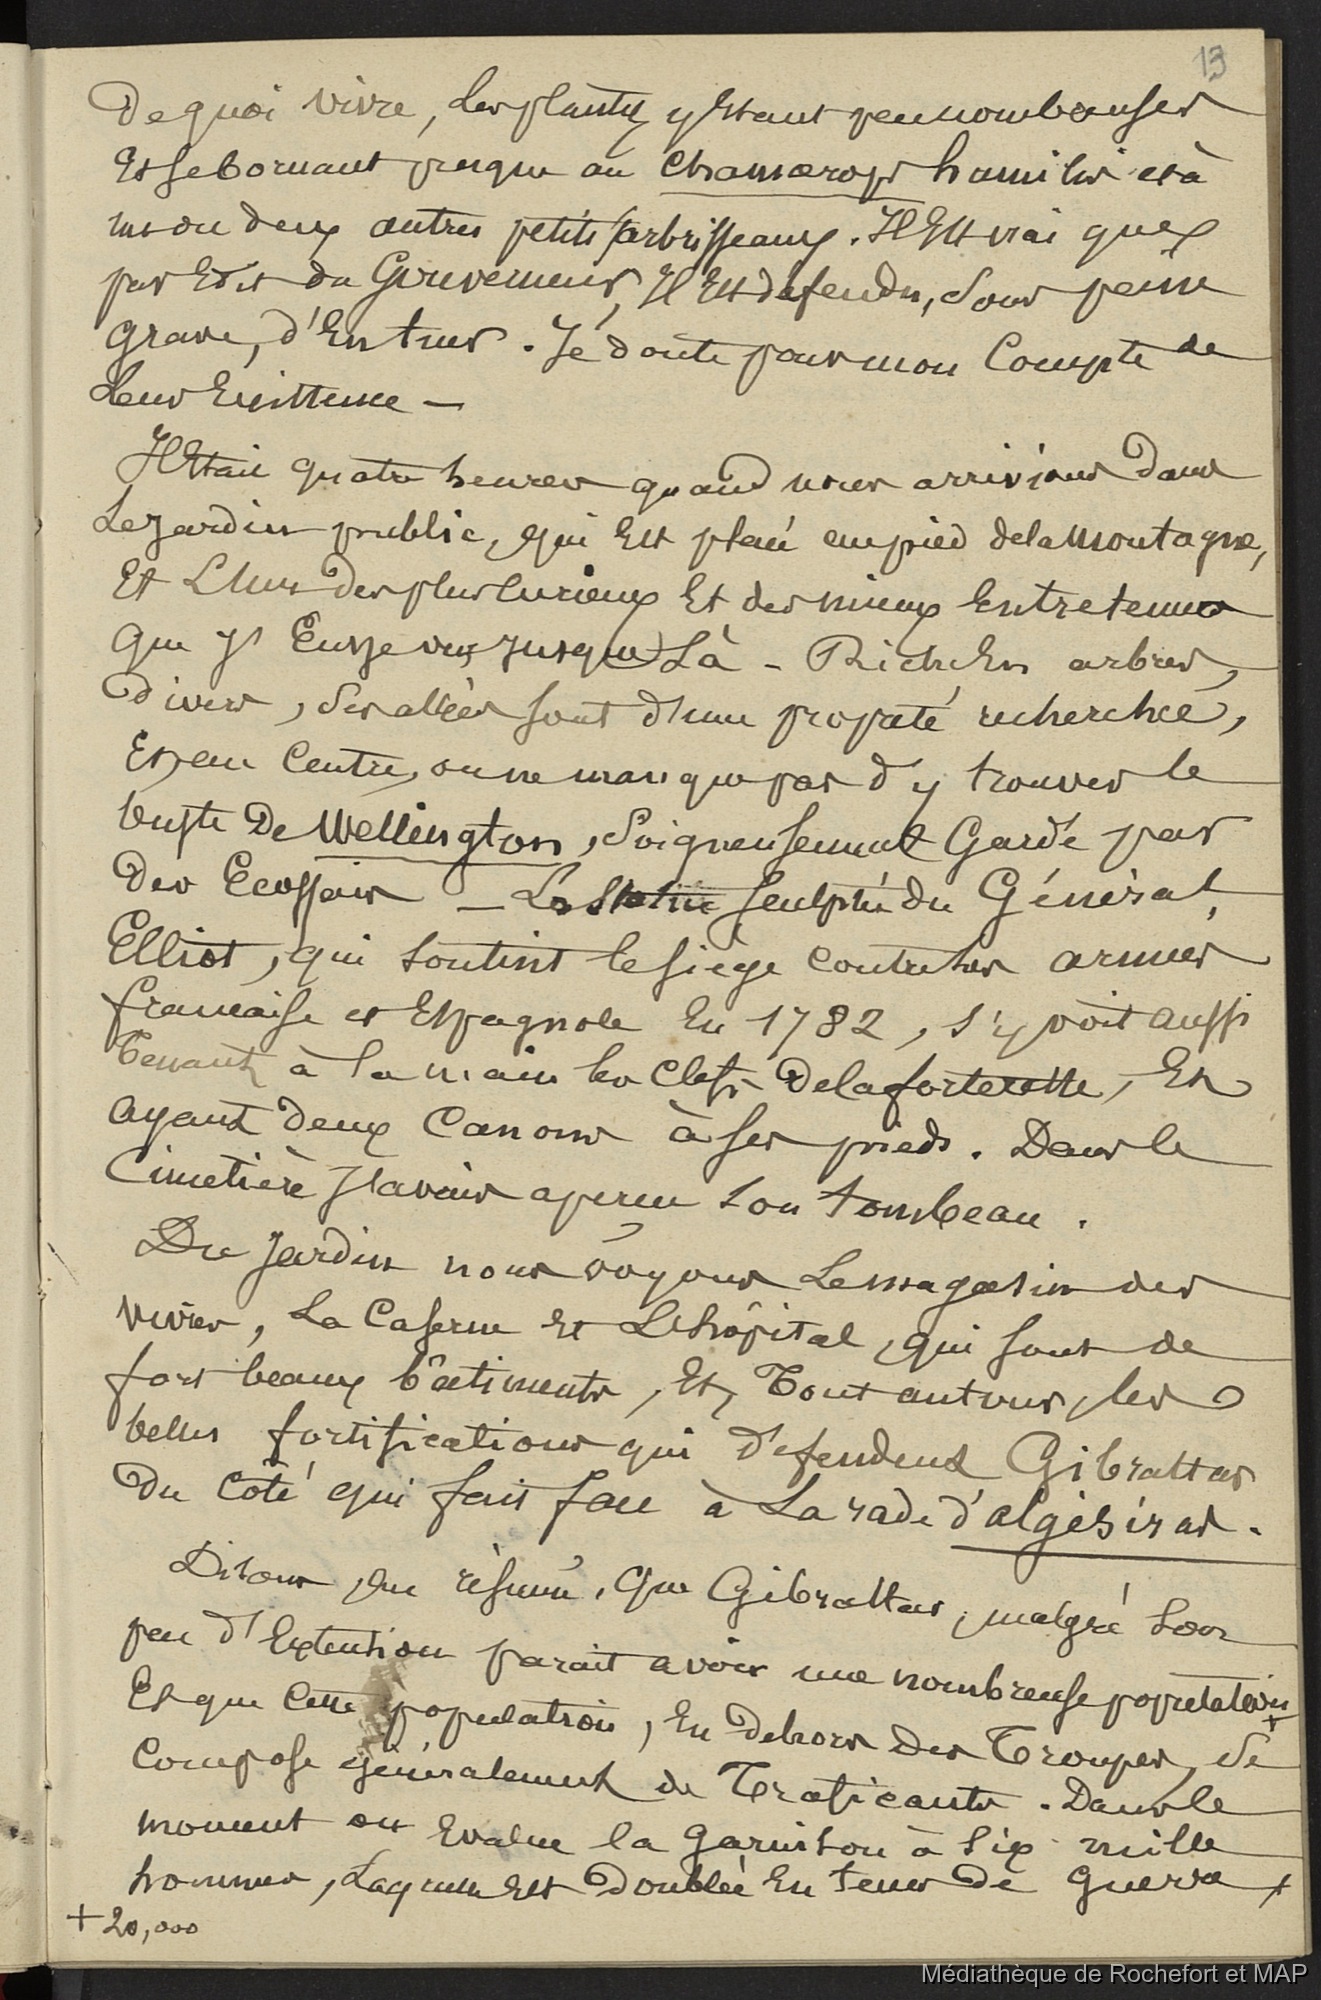 13
De quoi vivre, les plantes y étant peu nombreuses
Et se bornant presque au Chamœrops humilis et à
un ou deux autres petits arbrisseaux. Il Est vrai que
par Edit du Gouverneur, Il Est défendu, Sous peine
grave, d'En tuer. Je doute pour mon Compte de
Leur Existence —
Il Etait quatre heures quand nous arrivions Dans
Le Jardin public, qui Est placé au pied de la Montagne,
Et L'un des plus Curieux Et des mieux Entretenus
Que J'Eusse vus Jusque Là - Riche En arbres
Divers, Ses allées sont d'une propreté recherchée,
Et, au Centre, on ne manque pas d'y trouver le
buste De Wellington, Soigneusement Gardé par
Des Ecossais — La Statue sculptée du Général
Elliot, qui soutint le siège contre les armées
française et Espagnole En 1782, s'y voit aussi
Tenant à la main les Clefs De la forteresse, Et
Ayant Deux Canons à ses pieds. Dans le
Cimetière J'avais aperçu son tombeau.
Du Jardin nous voyons Le magasin des
vivres, La Caserne Et L'hôpital, qui sont de
fort beaux bâtiments, Et, Tout autour, les
belles fortifications qui Défendent Gibraltar
Du Côté qui fait face à La rade d'algésiras.
Disons, En résumé, Que Gibraltar, malgré son
peu d'Extension parait avoir une nombreuse population +
Et que Cette population, En Dehors Des Troupes, Se
Compose généralement de Traficants. Dans le
moment on Evalue la Garnison à Six mille
hommes, Laquelle Est Doublée En temps De Guerre +
+ 20,000
Médiathèque de Rochefort et MAP